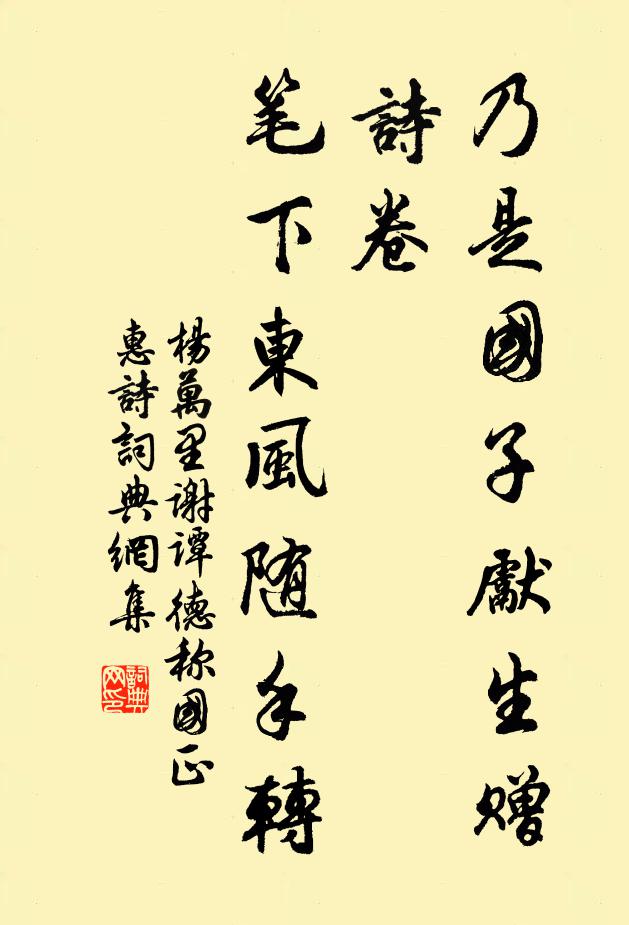 乃是國子獻生贈
詩卷
笔下東風随手轉
楊萬里謝譚德称國正
惠詩詞典網集
詞典
网印